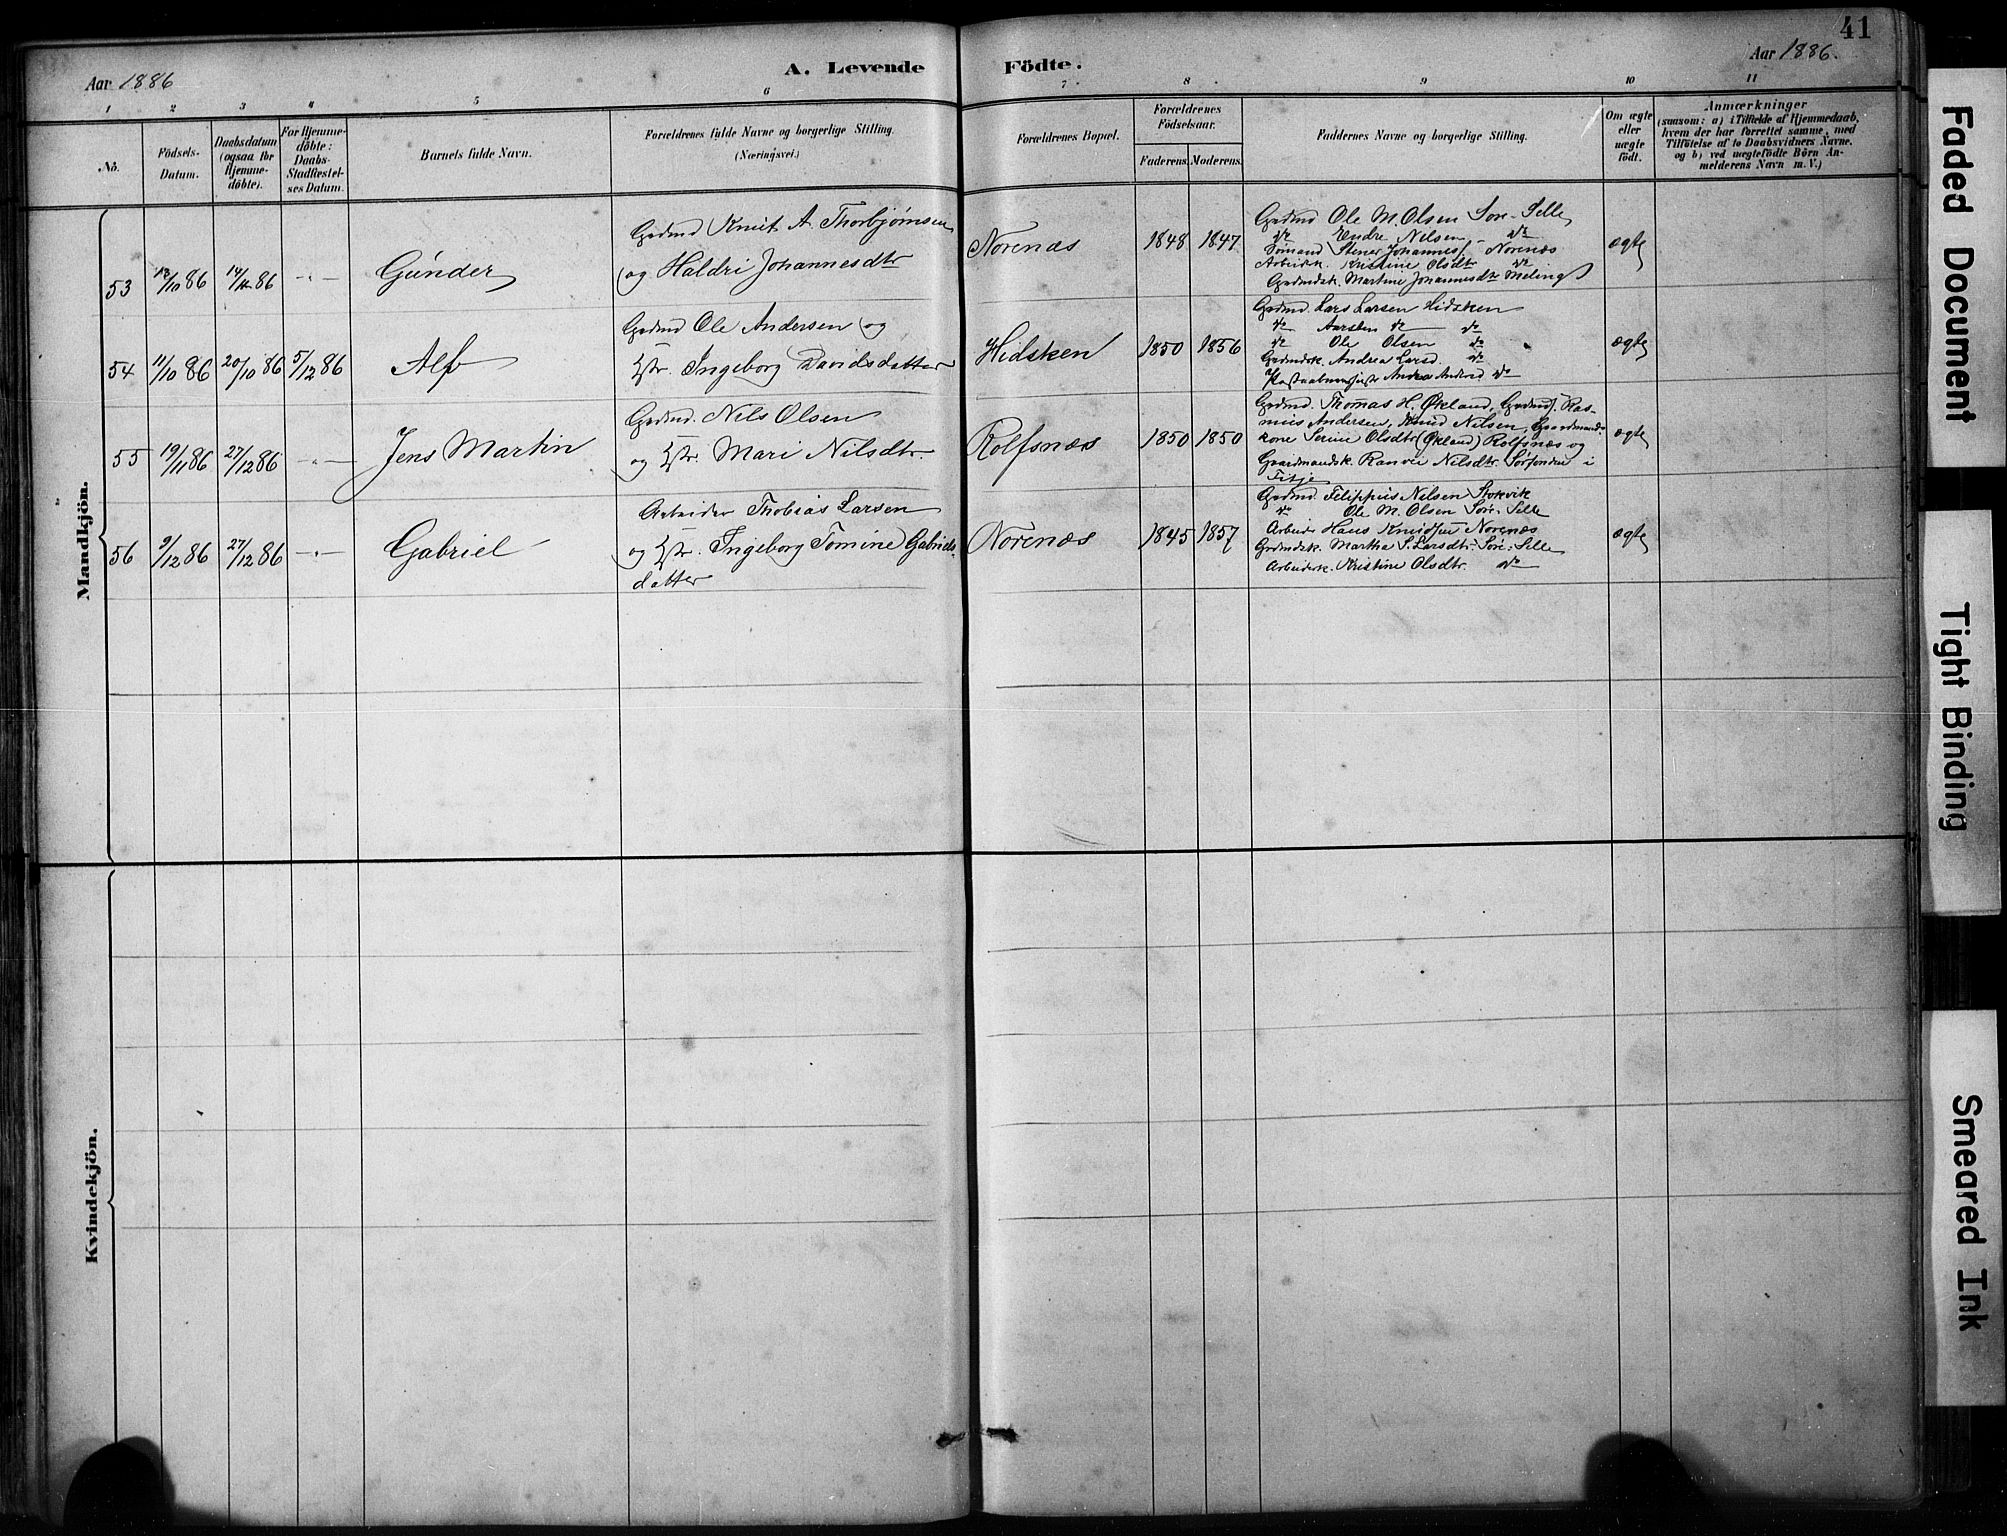 41
Aar 1886
A. Levende Födte.
Aar 1886.
1 2 3 4 5 6 7 8 9 10 11
No.
Födsels-
Datum.
Daabsdatum
(ogsaa for
Hjemme-
döbte).
For Hjemme-
döbte:
Daabs-
Stadfæstel-
ses Datum.
Barnets fulde Navn.
Forældrenes fulde Navne og borgerlige Stilling.
(Næringsvei.)
Forældrenes Bopæl.
Forældrenes
Födselsaar.
Faderens. Moderens.
Faddernes Navne og borgerlige Stilling.
Om ægte
eller
uægte
födt.
Anmærkninger
(saasom: a) i Tilfælde af Hjemmedaab,
hvem der har forrettet samme, med
Tilföielse af to Daabsvidners Navne,
og b) ved uægtefödte Börn An-
melderens Navn m. V.)
Mandkjön.
53
/10 86
86
Gunder
Grdmd Knut A. Thorbjørnsen
og Haldri Johannesdtr
Norenæs
1848 1847
Grdmd Ole M. Olsen Søre-Selle
do Endre Nilsen do
Sømand Stener Johannes Norenæs
Arbeidk. Kristine Olsdtr do
Grdmdsk. Martine Johannesdtr Meling
ægte
54
11/10 86
20/10 86
5/12 86
Alf
Grdmd Ole Andersen og
Hstr. Ingeborg Davidsdatter
Hidsken
1850 1856
Grdmd. Lars Larsen Hidsken
do do do
do Ole Olsen do
Grdmdsk. Andrea Larsd. do
do
ægte
55
19/11 86
27/12 86
Jens Martin
Grdmd. Nils Olsen
og Hstr. Mari Nilsdtr.
Rolfsnæs
1850 1850
Grdmd. Thomas H. Økland, Grdmd. Ras-
mus Andersen, Knud Nilsen, Gaardmands-
kone Serine Olsdtr (Økland) Rolfsnæs og
Gaardmandsk. Ranvei Nilsdtr. Sørfonden i
Fitje
ægte
56
9/12 86
27/12 86
Gabriel
Arbeider Thobias Larsen
og Hstr. Ingeborg Tomine Gabriels-
datter
Norenæs
1845 1857
Grdmd Filippus Nilsen Stokvik
do Ole M. Olsen Søre-Selle
Arbeider Hans Norenæs
Grdmdsk. Martha S. Larsdtr. Søre-Selle
Arbeidsk. Kristine Olsdtr. do
ægte
Kvindekjön.
Faded Document
Tight Binding
Smeared Ink